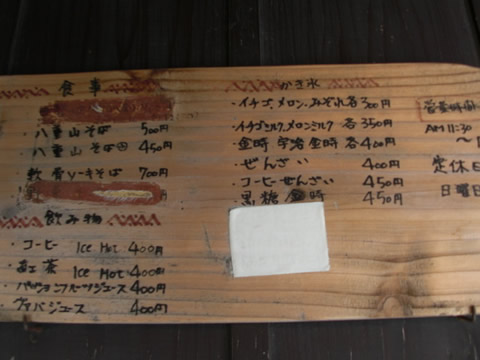 食事
八重山そば 500円
八重山そば小 450円
軟骨ソーキそば 700円
飲み物
・コーヒー Ice Hot 400円
・紅茶 Ice Hot 400円
・パッションフルーツジュース 400円
・グァバジュース 400円
かき氷
・イチゴ、メロン、みぞれ各300円
・イチゴミルク、メロンミルク 各350円
・金時 宇治金時 各400円
・ぜんざい 400円
・コーヒーぜんざい 450円
・黒糖金時 450円
営業時間
AM 11:30
〜
定休日
日曜日